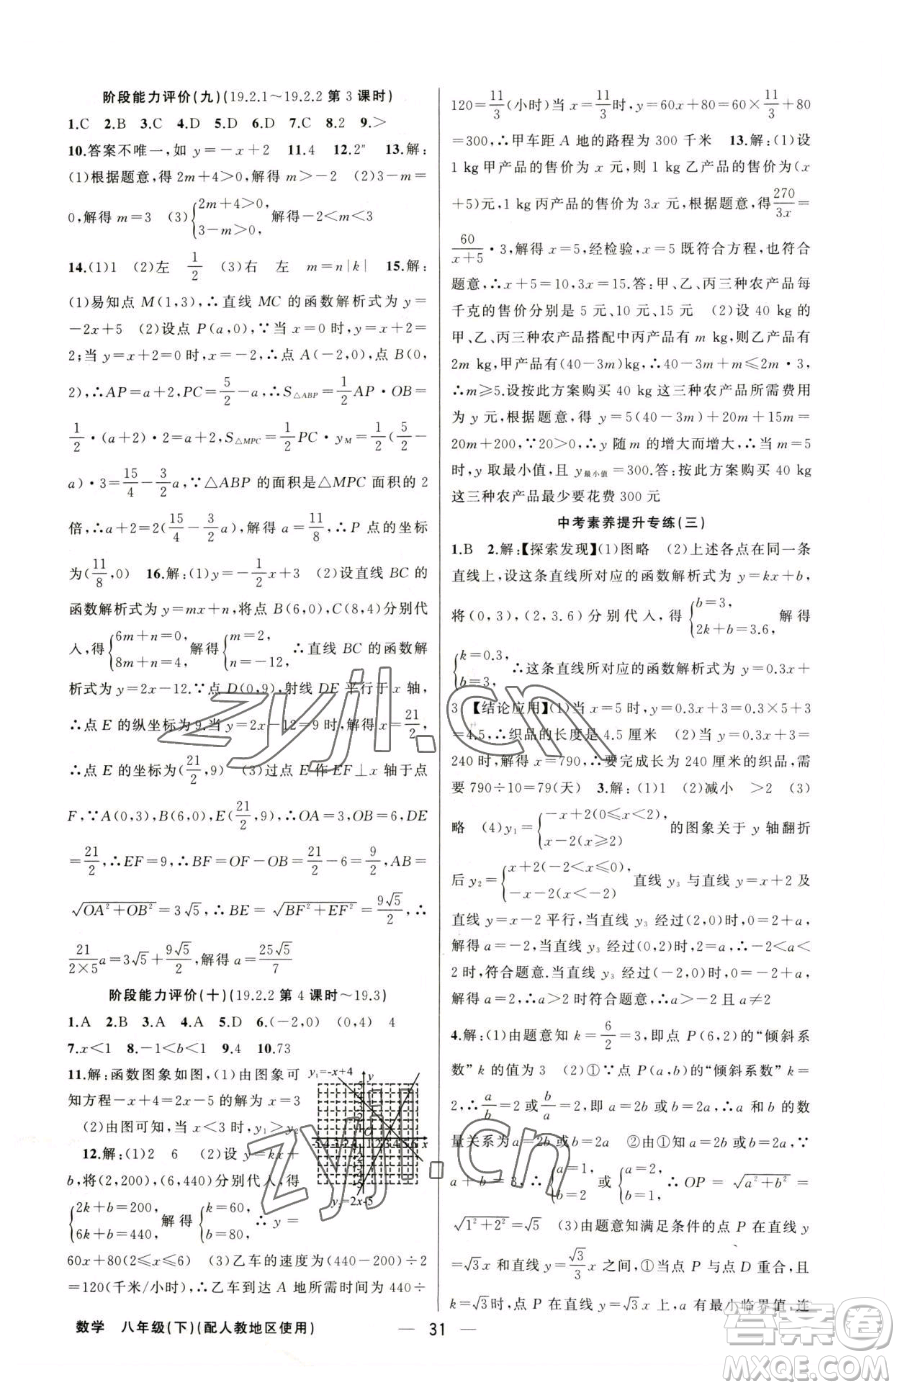 阶段能力评价(九)(19.2.1～19.2.2 第 3 课时)
1.C 2.B 3.C 4.D 5.D 6.D 7.C 8.2 9.>
10.答案不唯一,如 y=-x+2 11.4 12.2ⁿ 13.解:
(1)根据题意,得 2m+4>0,解得 m>-2 (2)3-m=
0,解得 m=3 (3){2m+4>0, 3-m>0, 解得-2<m<3
14.(1)1 (2)左 1/2 (3)右 左 m=n|k| 15.解:
(1)易知点 M(1,3),∴直线 MC 的函数解析式为 y=
-2x+5 (2)设点 P(a,0),∵当 x=0 时,y=x+2=
2;当 y=x+2=0 时,x=-2,∴点 A(-2,0),点 B(0,
2),∴AP=a+2,PC=5/2-a,∴S△ABP=1/2AP·OB=
1/2·(a+2)·2=a+2,S△MPC=1/2PC·yM=1/2(5/2-
a)·3=15/4-3/2a,∵△ABP 的面积是△MPC 面积的 2
倍,∴a+2=2(15/4-3/2a),∴a=11/8,∴P 点的坐标为
(11/8,0) 16.解:(1)y=-1/2x+3 (2)设直线 BC 的
函数解析式为 y=mx+n,将点 B(6,0),C(8,4)分别代
入,得{6m+n=0, 8m+n=4, 解得{m=2, n=-12, ∴直线 BC 的函
数解析式为 y=2x-12.∵点 D(0,9),射线 DE 平行于 x 轴,
∴点 E 的纵坐标为 9.当 y=2x-12=9 时,解得 x=21/2,
∴点 E 的坐标为(21/2,9) (3)过点 E 作 EF⊥x 轴于点
F,∵A(0,3),B(6,0),E(21/2,9),∴OA=3,OB=6,OF
=21/2,∴EF=9,∴BF=OF-OB=21/2-6=9/2,AB=
√OA²+OB²=3√5,∴BE=√BF²+EF²=9√5/2,∴
21/2×5 a=3√5+9√5/2,∴a=25√5/7
阶段能力评价(十)(19.2.2 第 4 课时～19.3)
1.A 2.B 3.A 4.A 5.D 6.(-2,0) (0,4) 4
7.x<1 8.-1<b<1 9.4 10.73
11.解:函数图象如图,(1)由图象可
知方程-x+4=2x-5 的解为 x=3
(2)由图可知,当 x<3 时,y₁>y₂
12.解:(1)2 6 (2)设 y=kx+
b,将(2,200),(6,440)分别代入,得
{2k+b=200, 6k+b=440, 解得{k=60, b=80, ∴y=
60x+80(2≤x≤6) (3)乙车的速度为(440-200)÷2
=120(千米/小时),∴乙车到达 A 地所需时间为 440÷
y₁=-x+4
y₂=2x-5
120=11/3(小时)当 x=11/3时,y=60x+80=60×11/3+80
=300,∴甲车距 A 地的路程为 300 千米 13.解:(1)设
1 kg 甲产品的售价为 x 元,则 1 kg 乙产品的售价为(x
+5)元,1 kg 丙产品的售价为 3x 元,根据题意,得270/3x=
60/x+5·3,解得 x=5,经检验,x=5 既符合方程,也符合
题意,∴x+5=10,3x=15.答:甲、乙、丙三种农产品每
千克的售价分别是 5 元、10 元、15 元 (2)设 40 kg 的
甲、乙、丙三种农产品搭配中丙产品有 m kg,则乙产品有
2m kg,甲产品有(40-3m)kg,∴40-3m≤2m·3,
∴m≥5.设按此方案购买 40 kg 这三种农产品所需费用
为 y 元,根据题意,得 y=5(40-3m)+20m+15m=
20m+200,∵20>0,∴y 随 m 的增大而增大,∴当 m=5
时,y 取最小值,且 y最小值=300.答:按此方案购买 40 kg
这三种农产品最少要花费 300 元
中考素养提升专练(三)
1.B 2.解:【探索发现】(1)图略 (2)上述各点在同一条
直线上,设这条直线所对应的函数解析式为 y=kx+b,
将(0,3),(2,3.6)分别代入,得{b=3, 2k+b=3.6, 解得
{k=0.3, b=3, ∴这条直线所对应的函数解析式为 y=0.3x+
3 【结论应用】(1)当 x=5 时,y=0.3x+3=0.3×5+3
=4.5,∴织品的长度是 4.5 厘米 (2)当 y=0.3x+3=
240 时,解得 x=790,∴要完成长为 240 厘米的织品,
需要 790÷10=79(天) 3.解:(1)2 (2)减小 >2 (3)
略 (4)y₁={-x+2(0≤x<2), x-2(x≥2) 的图象关于 y 轴翻折
后 y₂={x+2(-2<x≤0), -x-2(x≤-2), 直线 y₃ 与直线 y=x+2 和
直线 y=x-2 平行,当直线 y₃ 经过(-2,0)时,0=2+a,
解得 a=-2,当直线 y₃ 经过(2,0)时,0=-2+a,∴-2<a<
2 时符合题意,当直线 y₃ 经过(0,-2)时,-2=0+a,解得
a=-2,∴a>-2 时符合条件,∴-2<a<2
4.解:(1)由题意知 k=6/2=3,即点 P(6,2)的“倾斜系
数”k 的值为 3 (2)①∵点 P(a,b)的“倾斜系数”k=2,
∴a/b=2 或b/a=2,即 a=2b 或 b=2a,∴a 和 b 的数
量关系为 a=2b 或 b=2a ②由①知,a=2b 或 b=2a,∵
a+b=3,∴{a=1, b=2 或{a=2, b=1, ∴OP=√a²+b²=
√1²+2²=√5 (3)由题意知满足条件的点 P 在直线 y
=√3x 和 y=√3/3x 之间,①当点 P 与点 D 重合,且 k=√3 时,
数学 八年级(下)(配人教地区使用)
— 31 —
zyjl.cn
zyjl.cn
答案圈
MXQE.COM